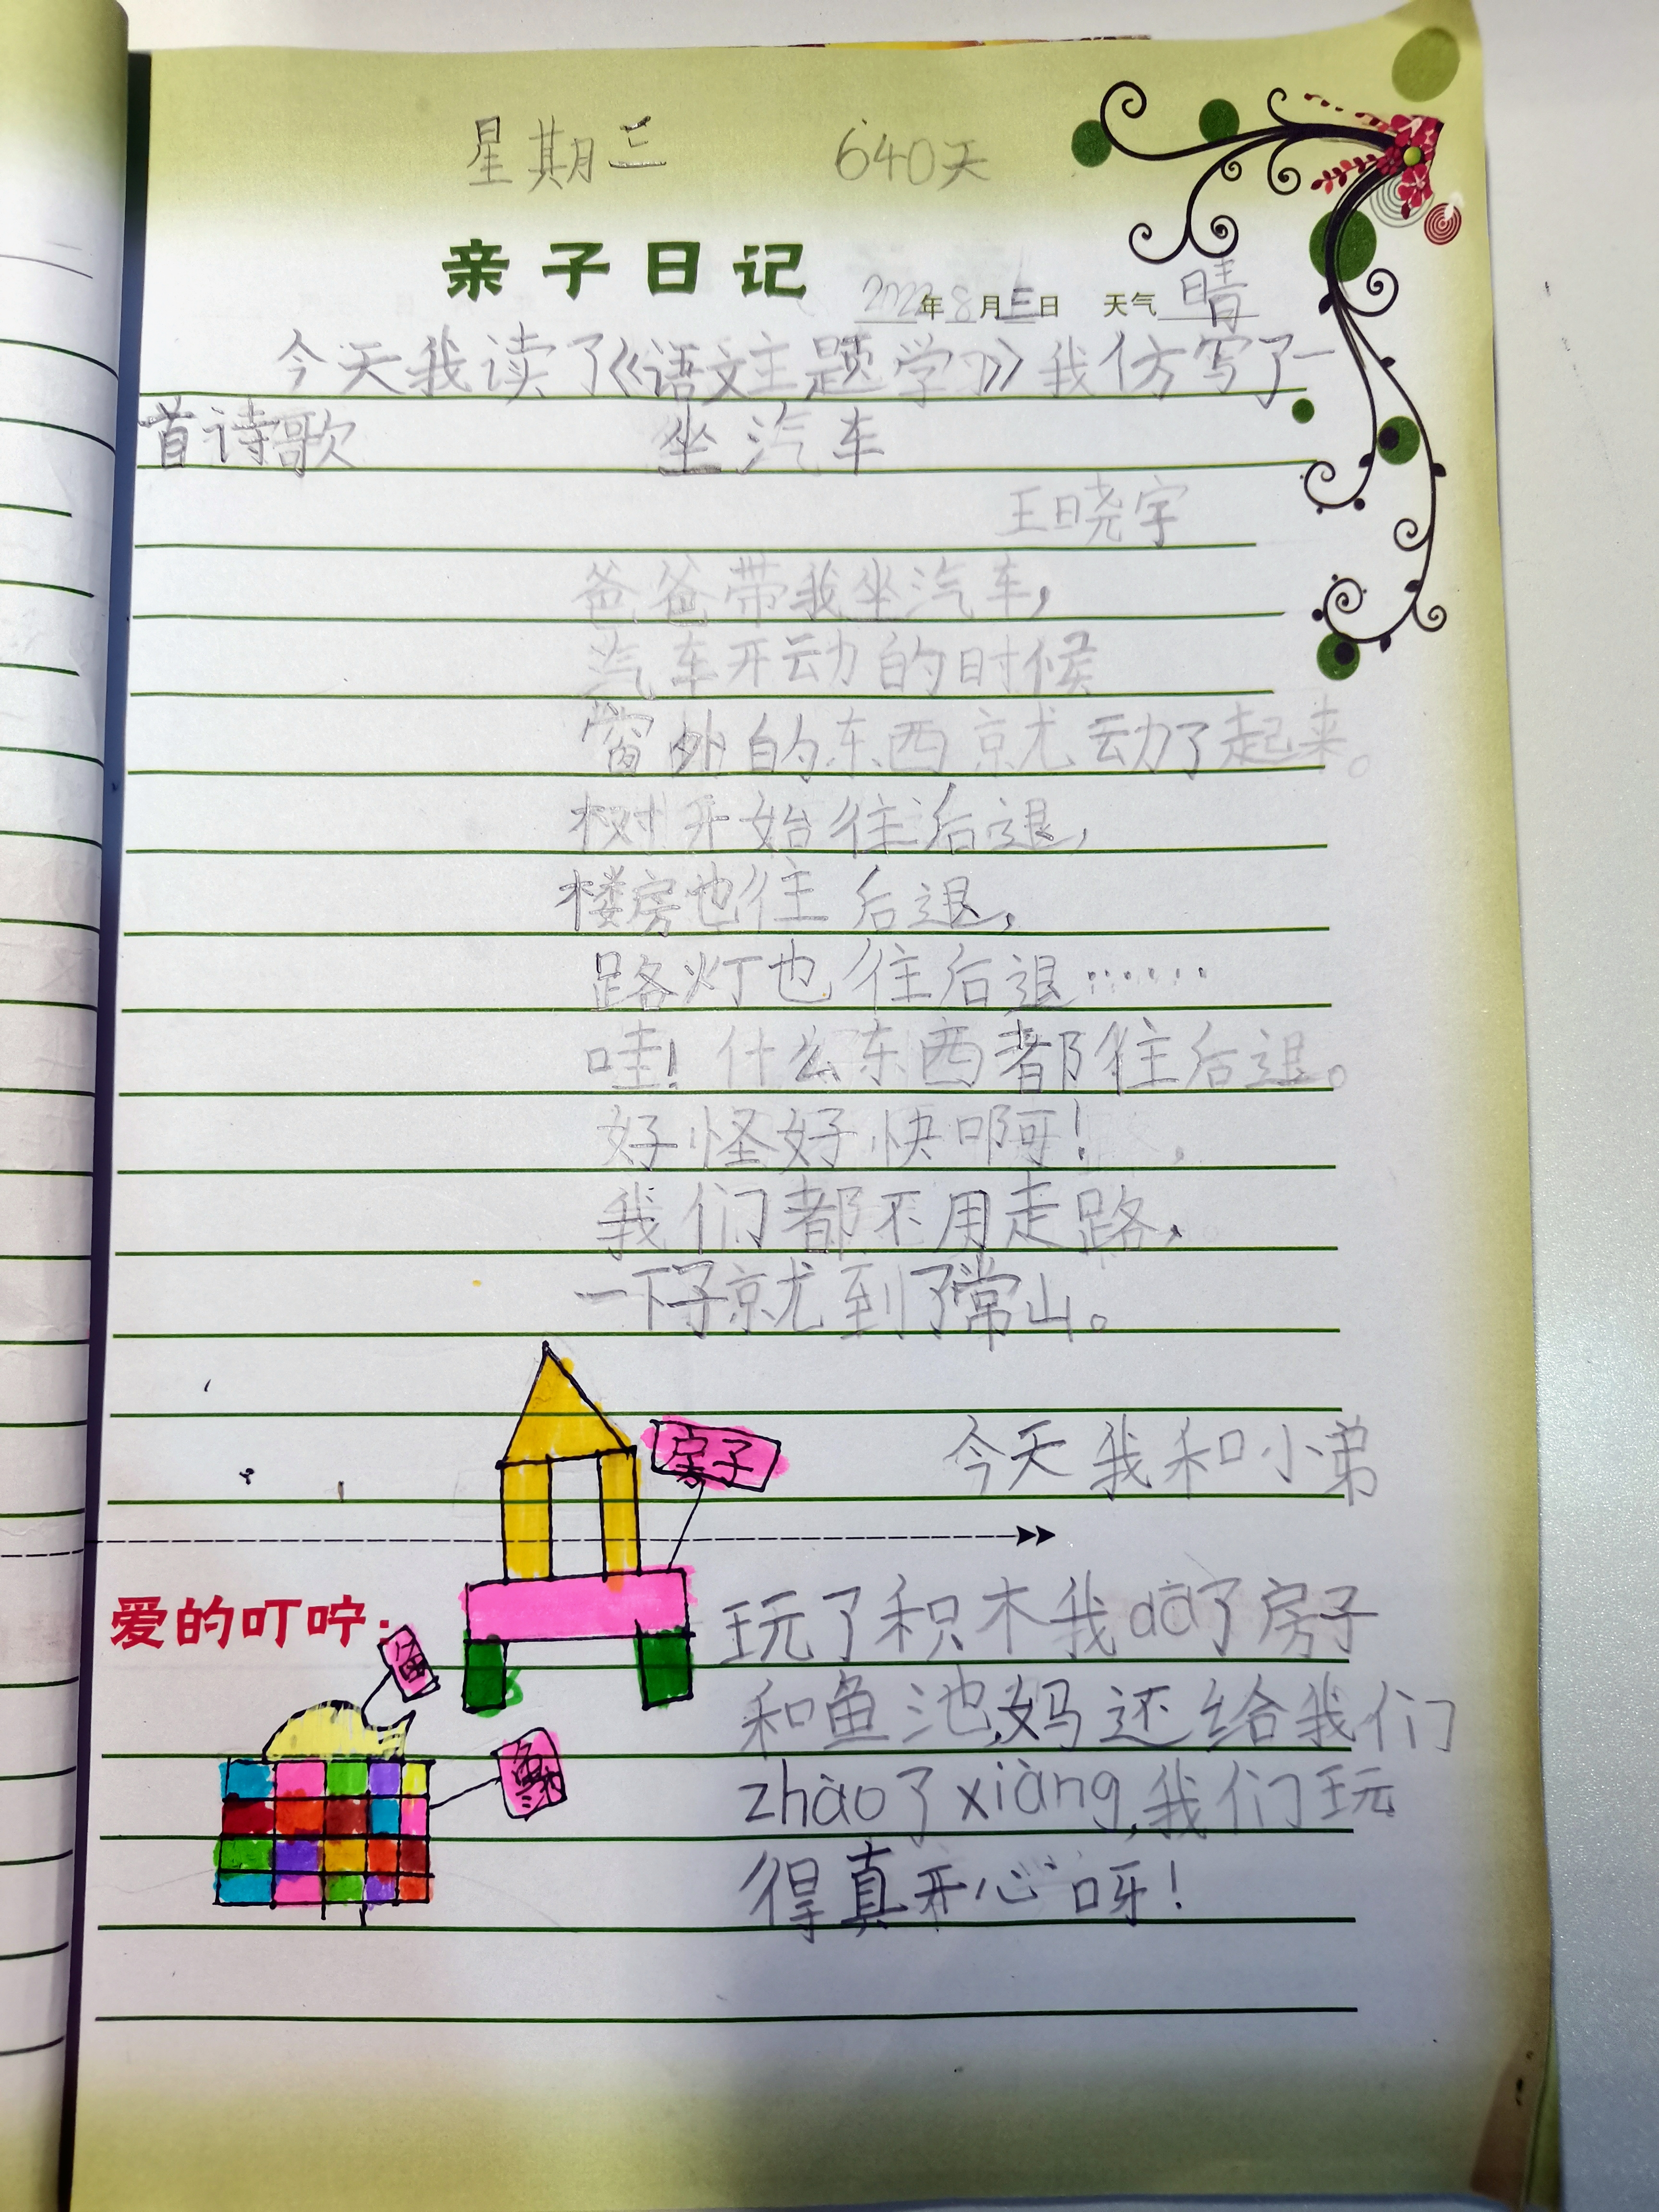 星期三 640天
亲子日记 2022年8月三日 天气 晴
今天我读了《语文主题学习》我仿写了一
首诗歌 坐汽车
王晓宇
爸爸带我坐汽车,
汽车开动的时候
窗外的东西就动了起来。
树开始往后退,
楼房也往后退,
路灯也往后退……
哇!什么东西都往后退。
好怪好快啊!
我们都不用走路,
一下子就到了常山。
房子
今天我和小弟
爱的叮咛:
玩了积木我dā了房子
和鱼池,妈还给我们
zhào了xiàng,我们玩
得真开心呀!
鱼
鱼池